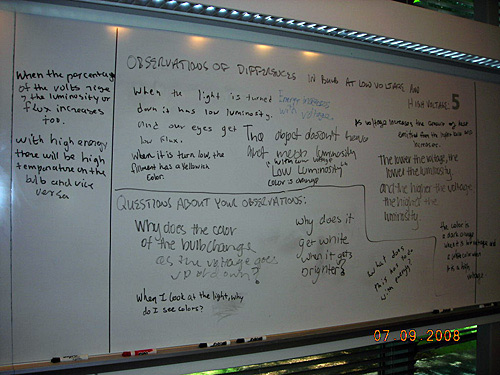 When the percentage
of the volts rise
the luminosity or
flux increases
too.
with high energy
there will be high
temperature on the
bulb and vice
versa
OBSERVATIONS OF DIFFERENCES IN BULB AT LOW VOLTAGE AND
HIGH VOLTAGE: 5
When the light is turned
down it has low luminosity.
and our eyes get
low flux.
When it is turn low, the
filament has a yellowish
color.
Energy increases
with voltage.
The object doesn't have
that much luminosity
when low voltage
Low Luminosity
color is orange
As voltage increases the amount of heat
emitted from the light bulb also
increases.
The lower the voltage, the
lower the luminosity,
and the higher the voltage
the higher the
luminosity.
the color is
a dark orange
when it is low voltage and
color when
it is a high
voltage
QUESTIONS ABOUT YOUR OBSERVATIONS:
Why does the color
of the bulb change
as the voltage goes
up and down?
When I look at the light, why
do I see colors?
why does it
get white
when it gets
brighter?
what does
this has to do
with energy?
07.09.2008